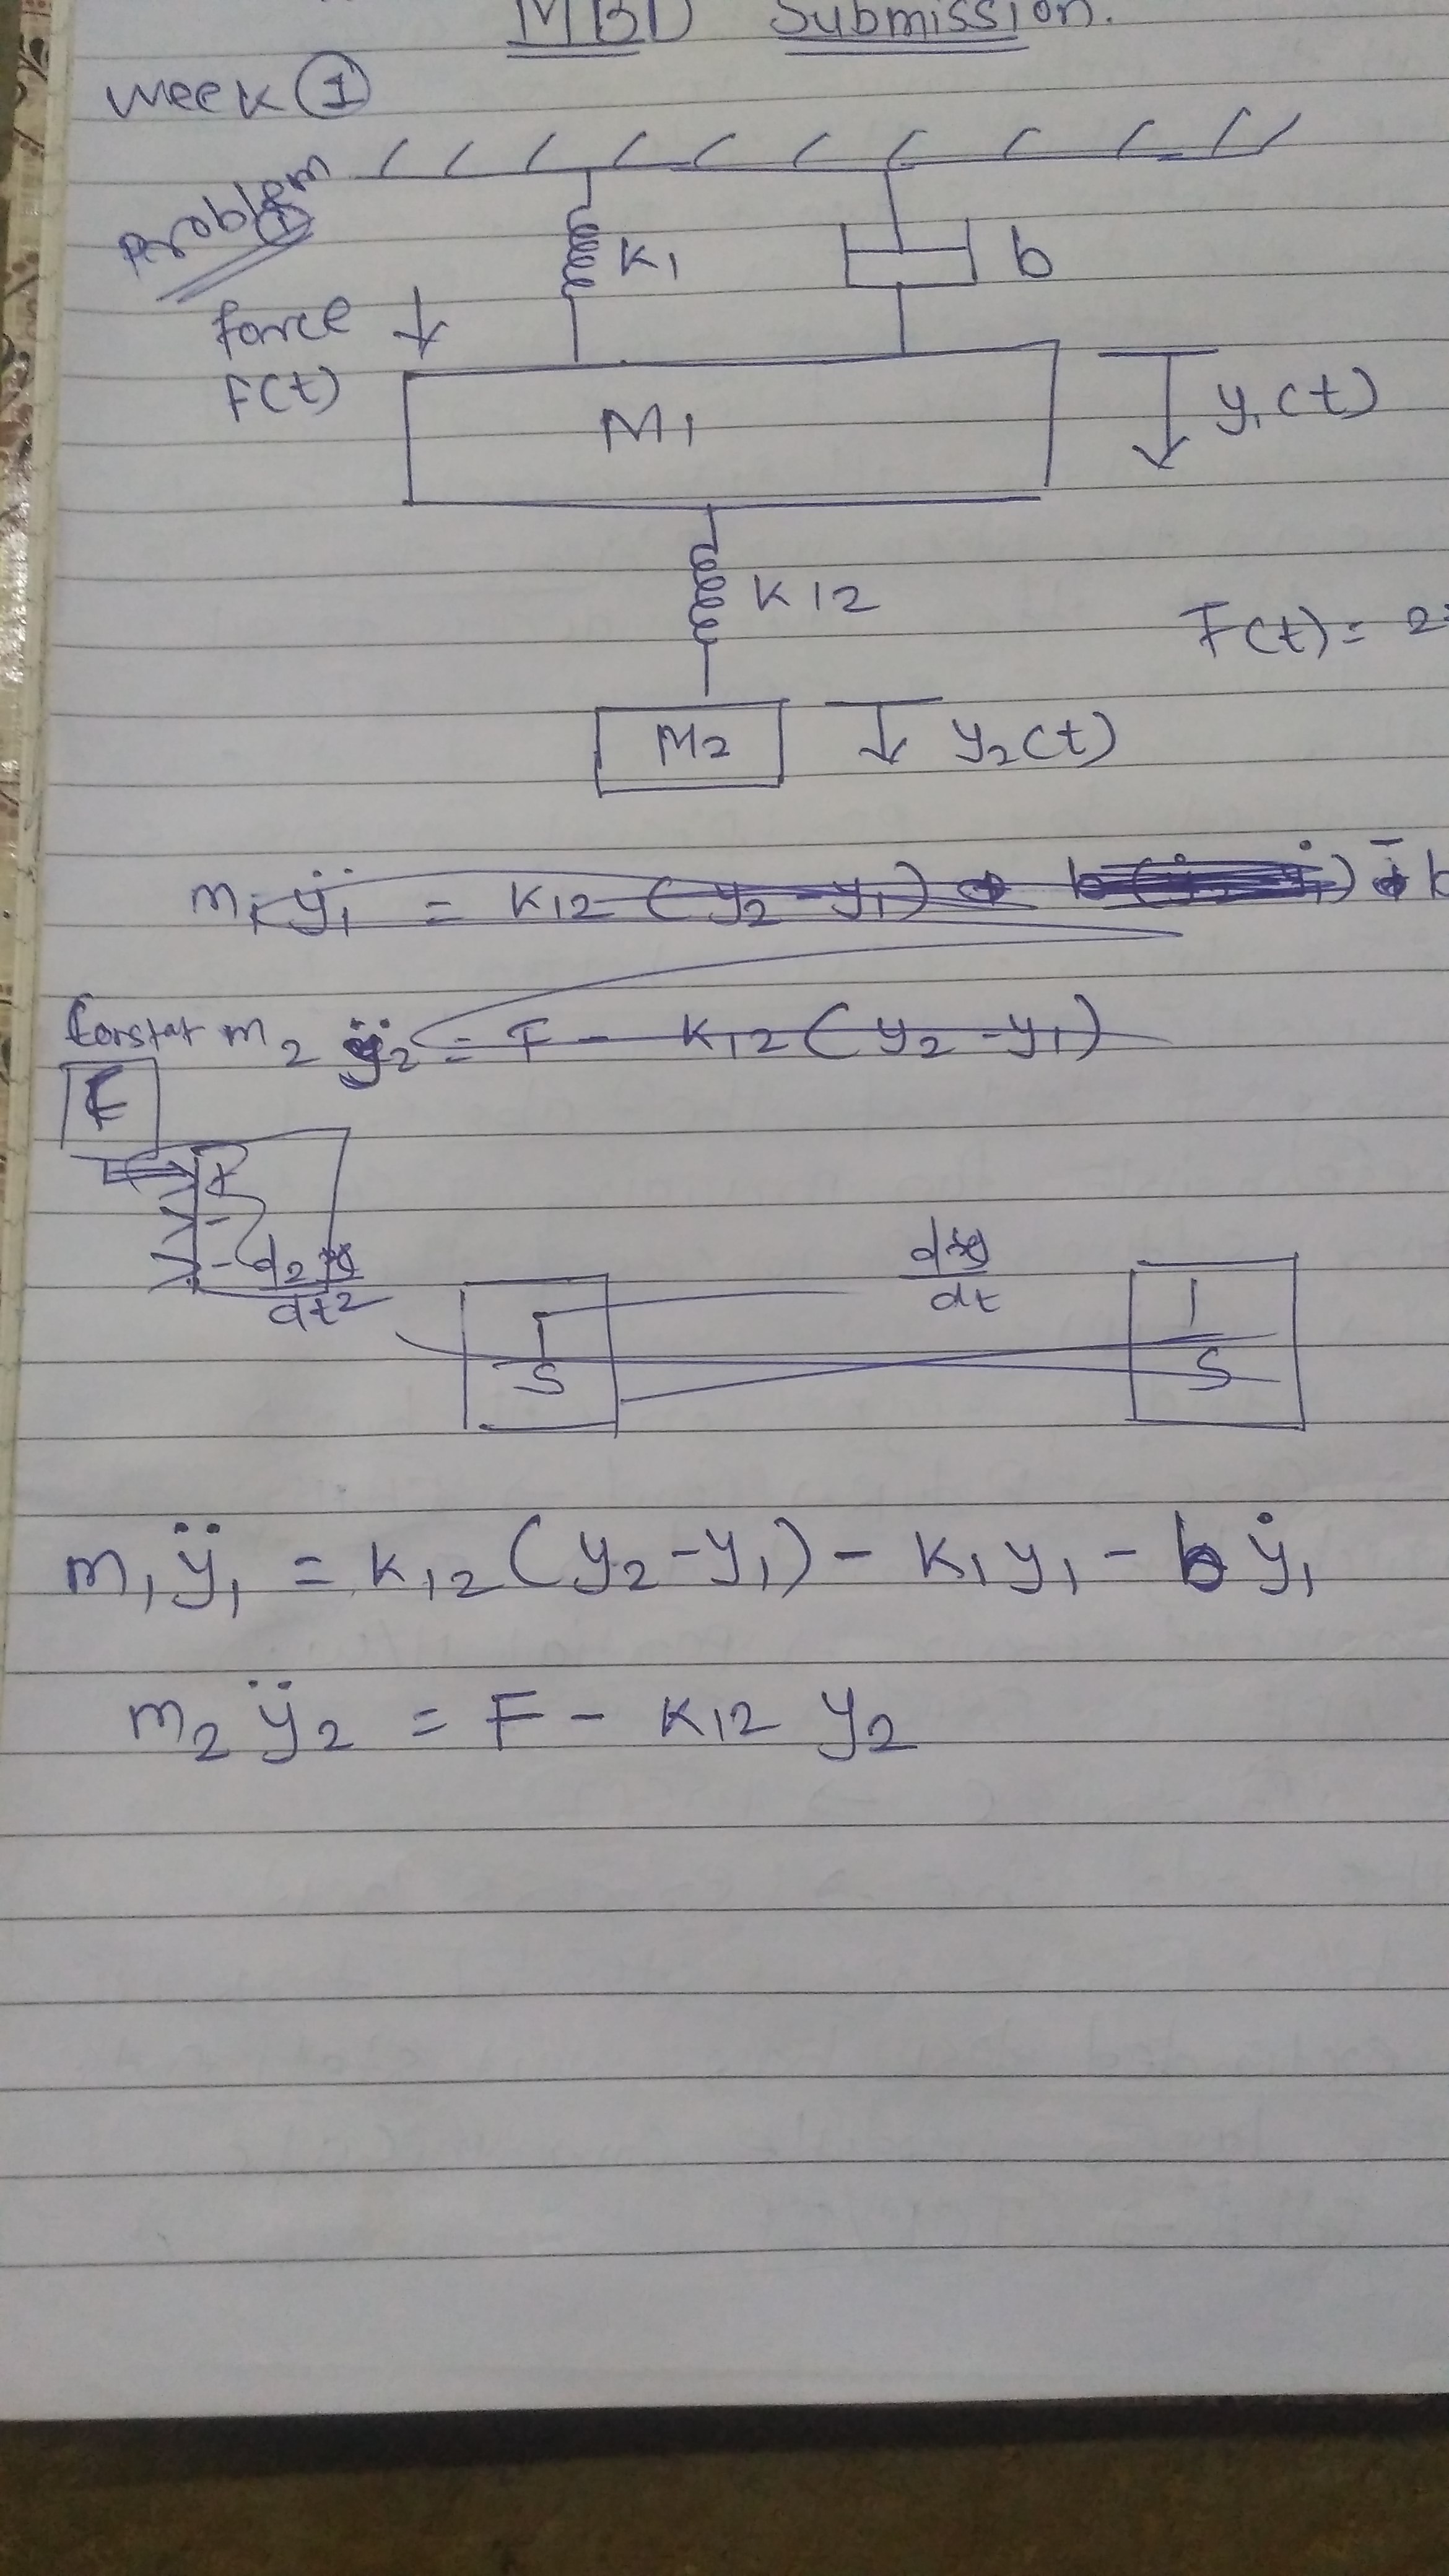 MBD Submission.
Week ①
Problem ①
K1
b
force
F(t)
M1
y1(t)
K12
F(t) = 2
M2
y2(t)
m1 ÿ1 = K12 (y2 - y1)
m2 ÿ2 = F - K12 (y2 - y1)
F
d2y/dt2
1/S
dy/dt
1/S
m1 ÿ1 = K12 (y2 - y1) - K1 y1 - b ẏ1
m2 ÿ2 = F - K12 y2